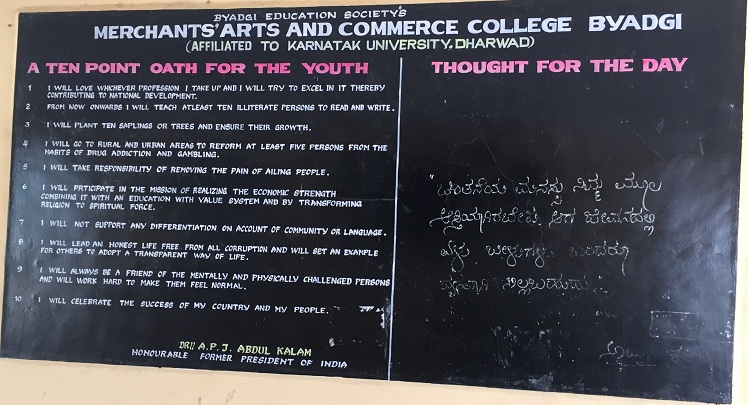 BYADGI EDUCATION SOCIETY'S
MERCHANTS' ARTS AND COMMERCE COLLEGE BYADGI
(AFFILIATED TO KARNATAK UNIVERSITY, DHARWAD)
A TEN POINT OATH FOR THE YOUTH
1 I WILL LOVE WHICHEVER PROFESSION I TAKE UP AND I WILL TRY TO EXCEL IN IT THEREBY
CONTRIBUTING TO NATIONAL DEVELOPMENT.
2 FROM NOW ONWARDS I WILL TEACH ATLEAST TEN ILLITERATE PERSONS TO READ AND WRITE.
3 I WILL PLANT TEN SAPLINGS OR TREES AND ENSURE THEIR GROWTH.
4 I WILL GO TO RURAL AND URBAN AREAS TO REFORM AT LEAST FIVE PERSONS FROM THE
HABITS OF DRUG ADDICTION AND GAMBLING.
5 I WILL TAKE RESPONSIBILITY OF REMOVING THE PAIN OF AILING PEOPLE.
6 I WILL PRTICIPATE IN THE MISSION OF REALIZING THE ECONOMIC STRENGTH
COMBINING IT WITH AN EDUCATION WITH VALUE SYSTEM AND BY TRANSFORMING
RELIGION TO SPIRITUAL FORCE.
7 I WILL NOT SUPPORT ANY DIFFERENTIATION ON ACCOUNT OF COMMUNITY OR LANGUAGE.
8 I WILL LEAD AN HONEST LIFE FREE FROM ALL CORRUPTION AND WILL SET AN EXAMPLE
FOR OTHERS TO ADOPT A TRANSPARENT WAY OF LIFE.
9 I WILL ALWAYS BE A FRIEND OF THE MENTALLY AND PHYSICALLY CHALLENGED PERSONS
AND WILL WORK HARD TO MAKE THEM FEEL NORMAL.
10 I WILL CELEBRATE THE SUCCESS OF MY COUNTRY AND MY PEOPLE.
DR|| A.P.J. ABDUL KALAM
HONOURABLE FORMER PRESIDENT OF INDIA
THOUGHT FOR THE DAY
"ಚಿಂತನೆಯ ಮನಸ್ಸು ನಿಮ್ಮ ಮೂಲ
ಆಸ್ತಿಯಾಗಿರಬೇಕು ಆಗ ಜೀವನದಲ್ಲಿ
ಬಂದರೂ